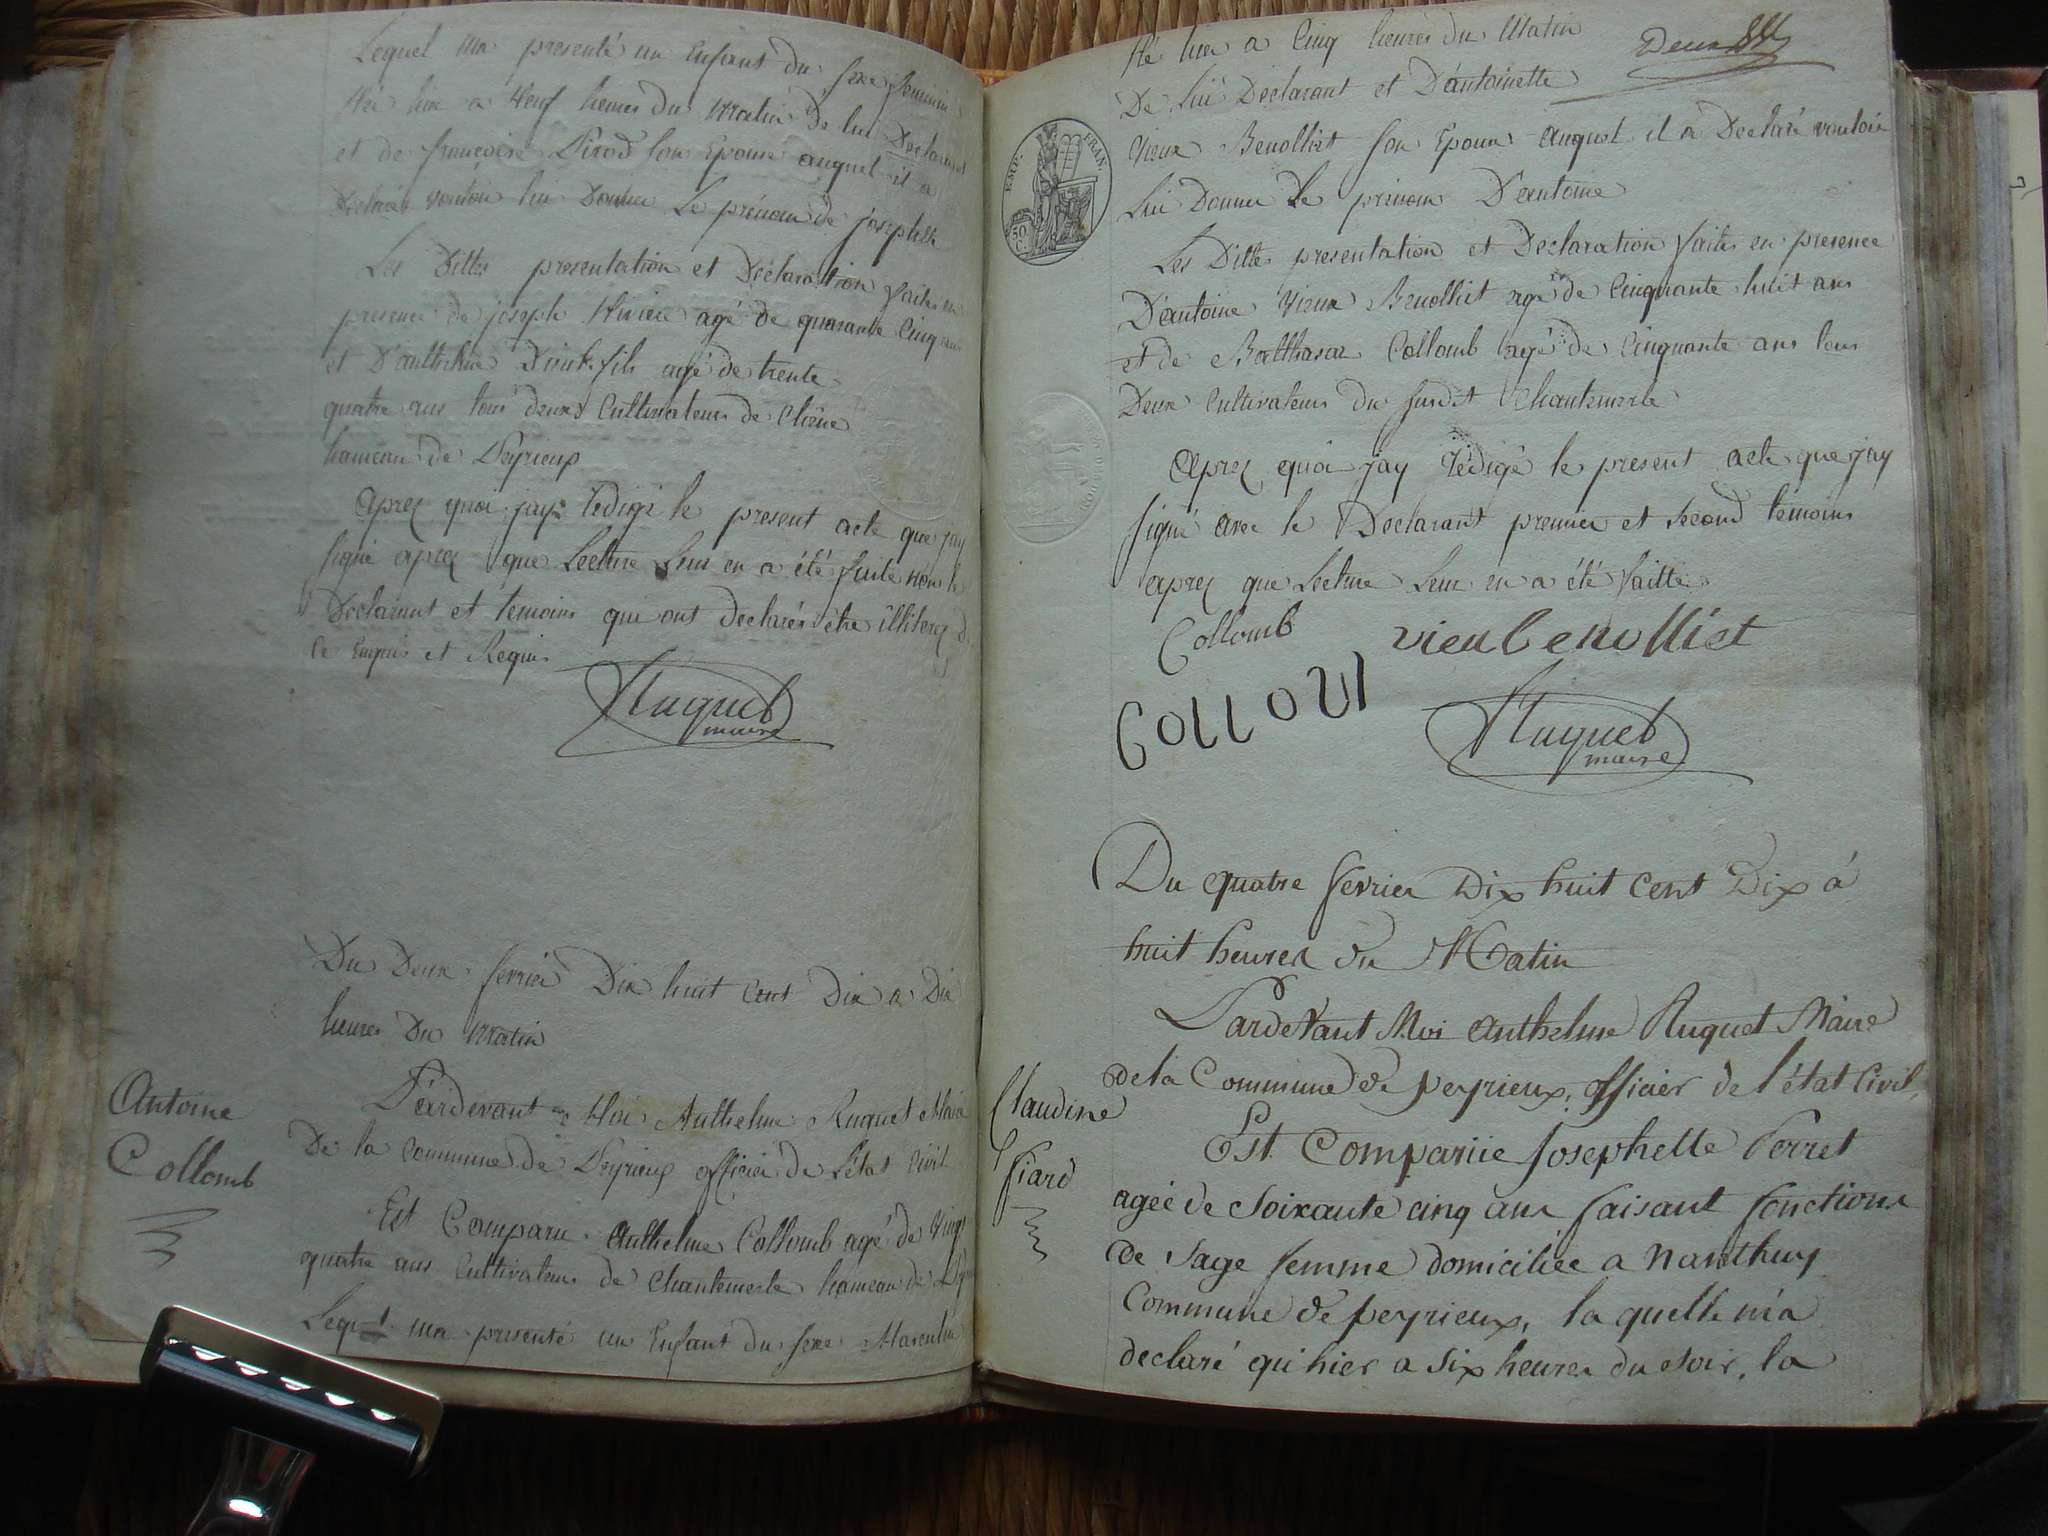 Lequel ma presenté un Enfant du sexe feminin
Né hier a Neuf heures du Matin de lui Declarant
et de françoise Pirod son Epouse auquel il a
Declaré vouloir lui Donner Le prénom de josephte
Les Dittes presentation et Déclaration faites en
presence de joseph Vivier agé de quarante Cinq ans
et D'anthelme fils agé de trente
quatre ans tous deux Cultivateurs de
hameau de Peyrieux
Aprez quoi jay redigé le present acte que jay
signé aprez que Lecture Leur en a été faite non le
Declarant et temoins qui ont declarés être illiterez de
ce Enquis et Requis
Ruguet
maire
Du Deux fevrier Dix huit cent Dix a Dix
heures Du Matin
Pardevant Moi Anthelme Ruguet Maire
De la Commune de Peyrieux officier de L'état Civil
Antoine
Collomb
Est Comparu Anthelme Collomb agé de Vingt
quatre ans Cultivateur de Chantemerle hameau de
Lequel ma presenté un Enfant du sexe Masculin
Deux
Né hier a Cinq heures du Matin
De lui Declarant et D'antoinette
EMP. FRAN.
50 C.
Vieux Benolliet son Epouse auquel il a Declaré vouloir
lui Donner le prenom D'antoine
Les Dittes presentation et Declaration faites en presence
D'antoine Vieux Benolliet agé de Cinquante huit ans
et de Balthasar Collomb agé de Cinquante ans tous
Deux Cultivateurs du susdit Chantemerle
Aprez quoi jay rédigé le present acte que jay
signé avec le Declarant premier et second temoins
aprez que Lecture Leur en a été faitte
Collomb vieu benolliet
Ruguet
maire
Du quatre fevrier Dix huit Cent Dix à
huit heures du Matin
Pardevant Moi Anthelme Ruguet Maire
de la Commune de peyrieux, officier de l'état Civil,
Claudine
fiard
Est Comparüe Josephette Perret
agée de Soixante cinq ans faisant fonctions
De Sage femme domiciliée a Nanthuy
Commune de peyrieux, la quelle m'a
declaré qu'hier a Six heures du soir, la